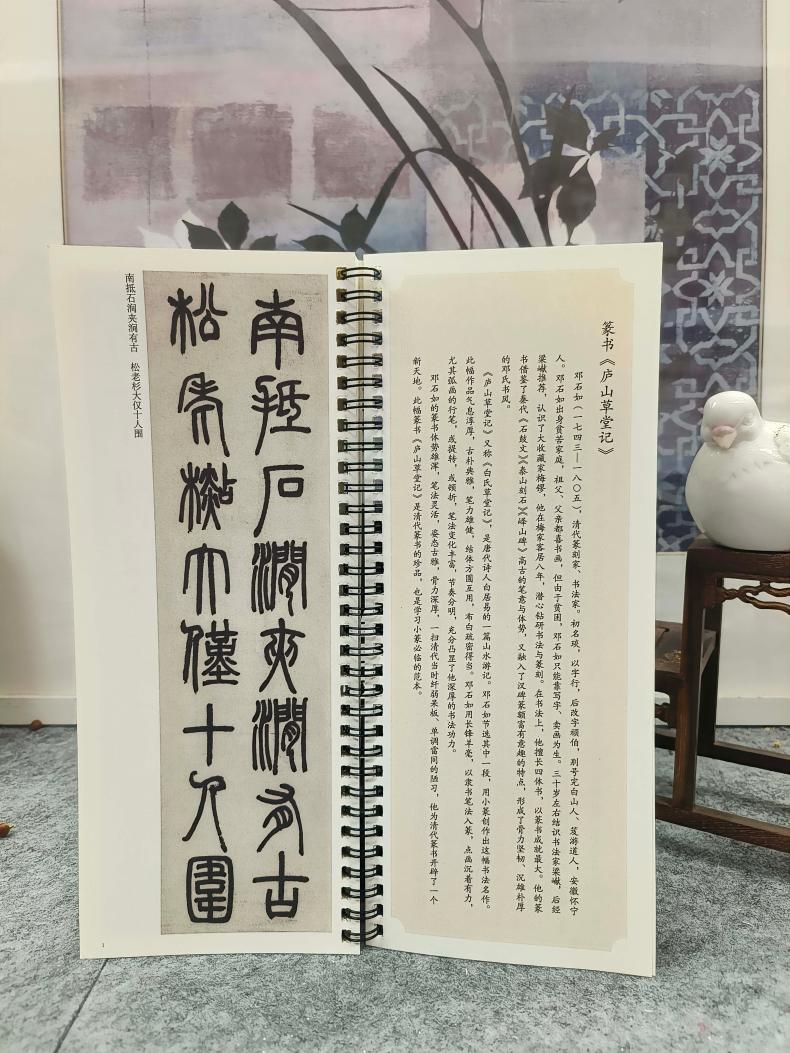 篆书《庐山草堂记》
邓石如(一七四三—一八〇五),清代篆刻家、书法家。初名琰,以字行,后改字顽伯,别号完白山人、笈游道人,安徽怀宁
人。邓石如出身贫苦家庭,祖父、父亲都喜书画,但由于贫困,邓石如只能靠写字、卖画为生。三十岁左右结识书法家梁巘,后经
梁巘推荐,认识了大收藏家梅镠,他在梅家客居八年,潜心钻研书法与篆刻。在书法上,他擅长四体书,以篆书成就最大。他的篆
书借鉴了秦代《石鼓文》《泰山刻石》《峄山碑》高古的笔意与体势,又融入了汉碑篆额富有意趣的特点,形成了骨力坚韧、沉雄朴厚
的邓氏书风。
《庐山草堂记》又称《白氏草堂记》,是唐代诗人白居易的一篇山水游记。邓石如节选其中一段,用小篆创作出这幅书法名作。
此幅作品气息淳厚,古朴典雅,笔力雄健,结体方圆互用,布白疏密得当。邓石如用长锋羊毫,以隶书笔法入篆,点画沉着有力,
尤其弧画的行笔,或提转,或顿折,笔法变化丰富,节奏分明,充分凸显了他深厚的书法功力。
邓石如的篆书体势雄浑,笔法灵活,姿态古雅,骨力深厚,一扫清代当时纤弱呆板、单调雷同的陋习,他为清代篆书开辟了一个
新天地。此幅篆书《庐山草堂记》是清代篆书的珍品,也是学习小篆必临的范本。
南抵石澗夾澗有古
松老樧大僅十人圍
南抵石涧夹涧有古 松老杉大仅十人围
1